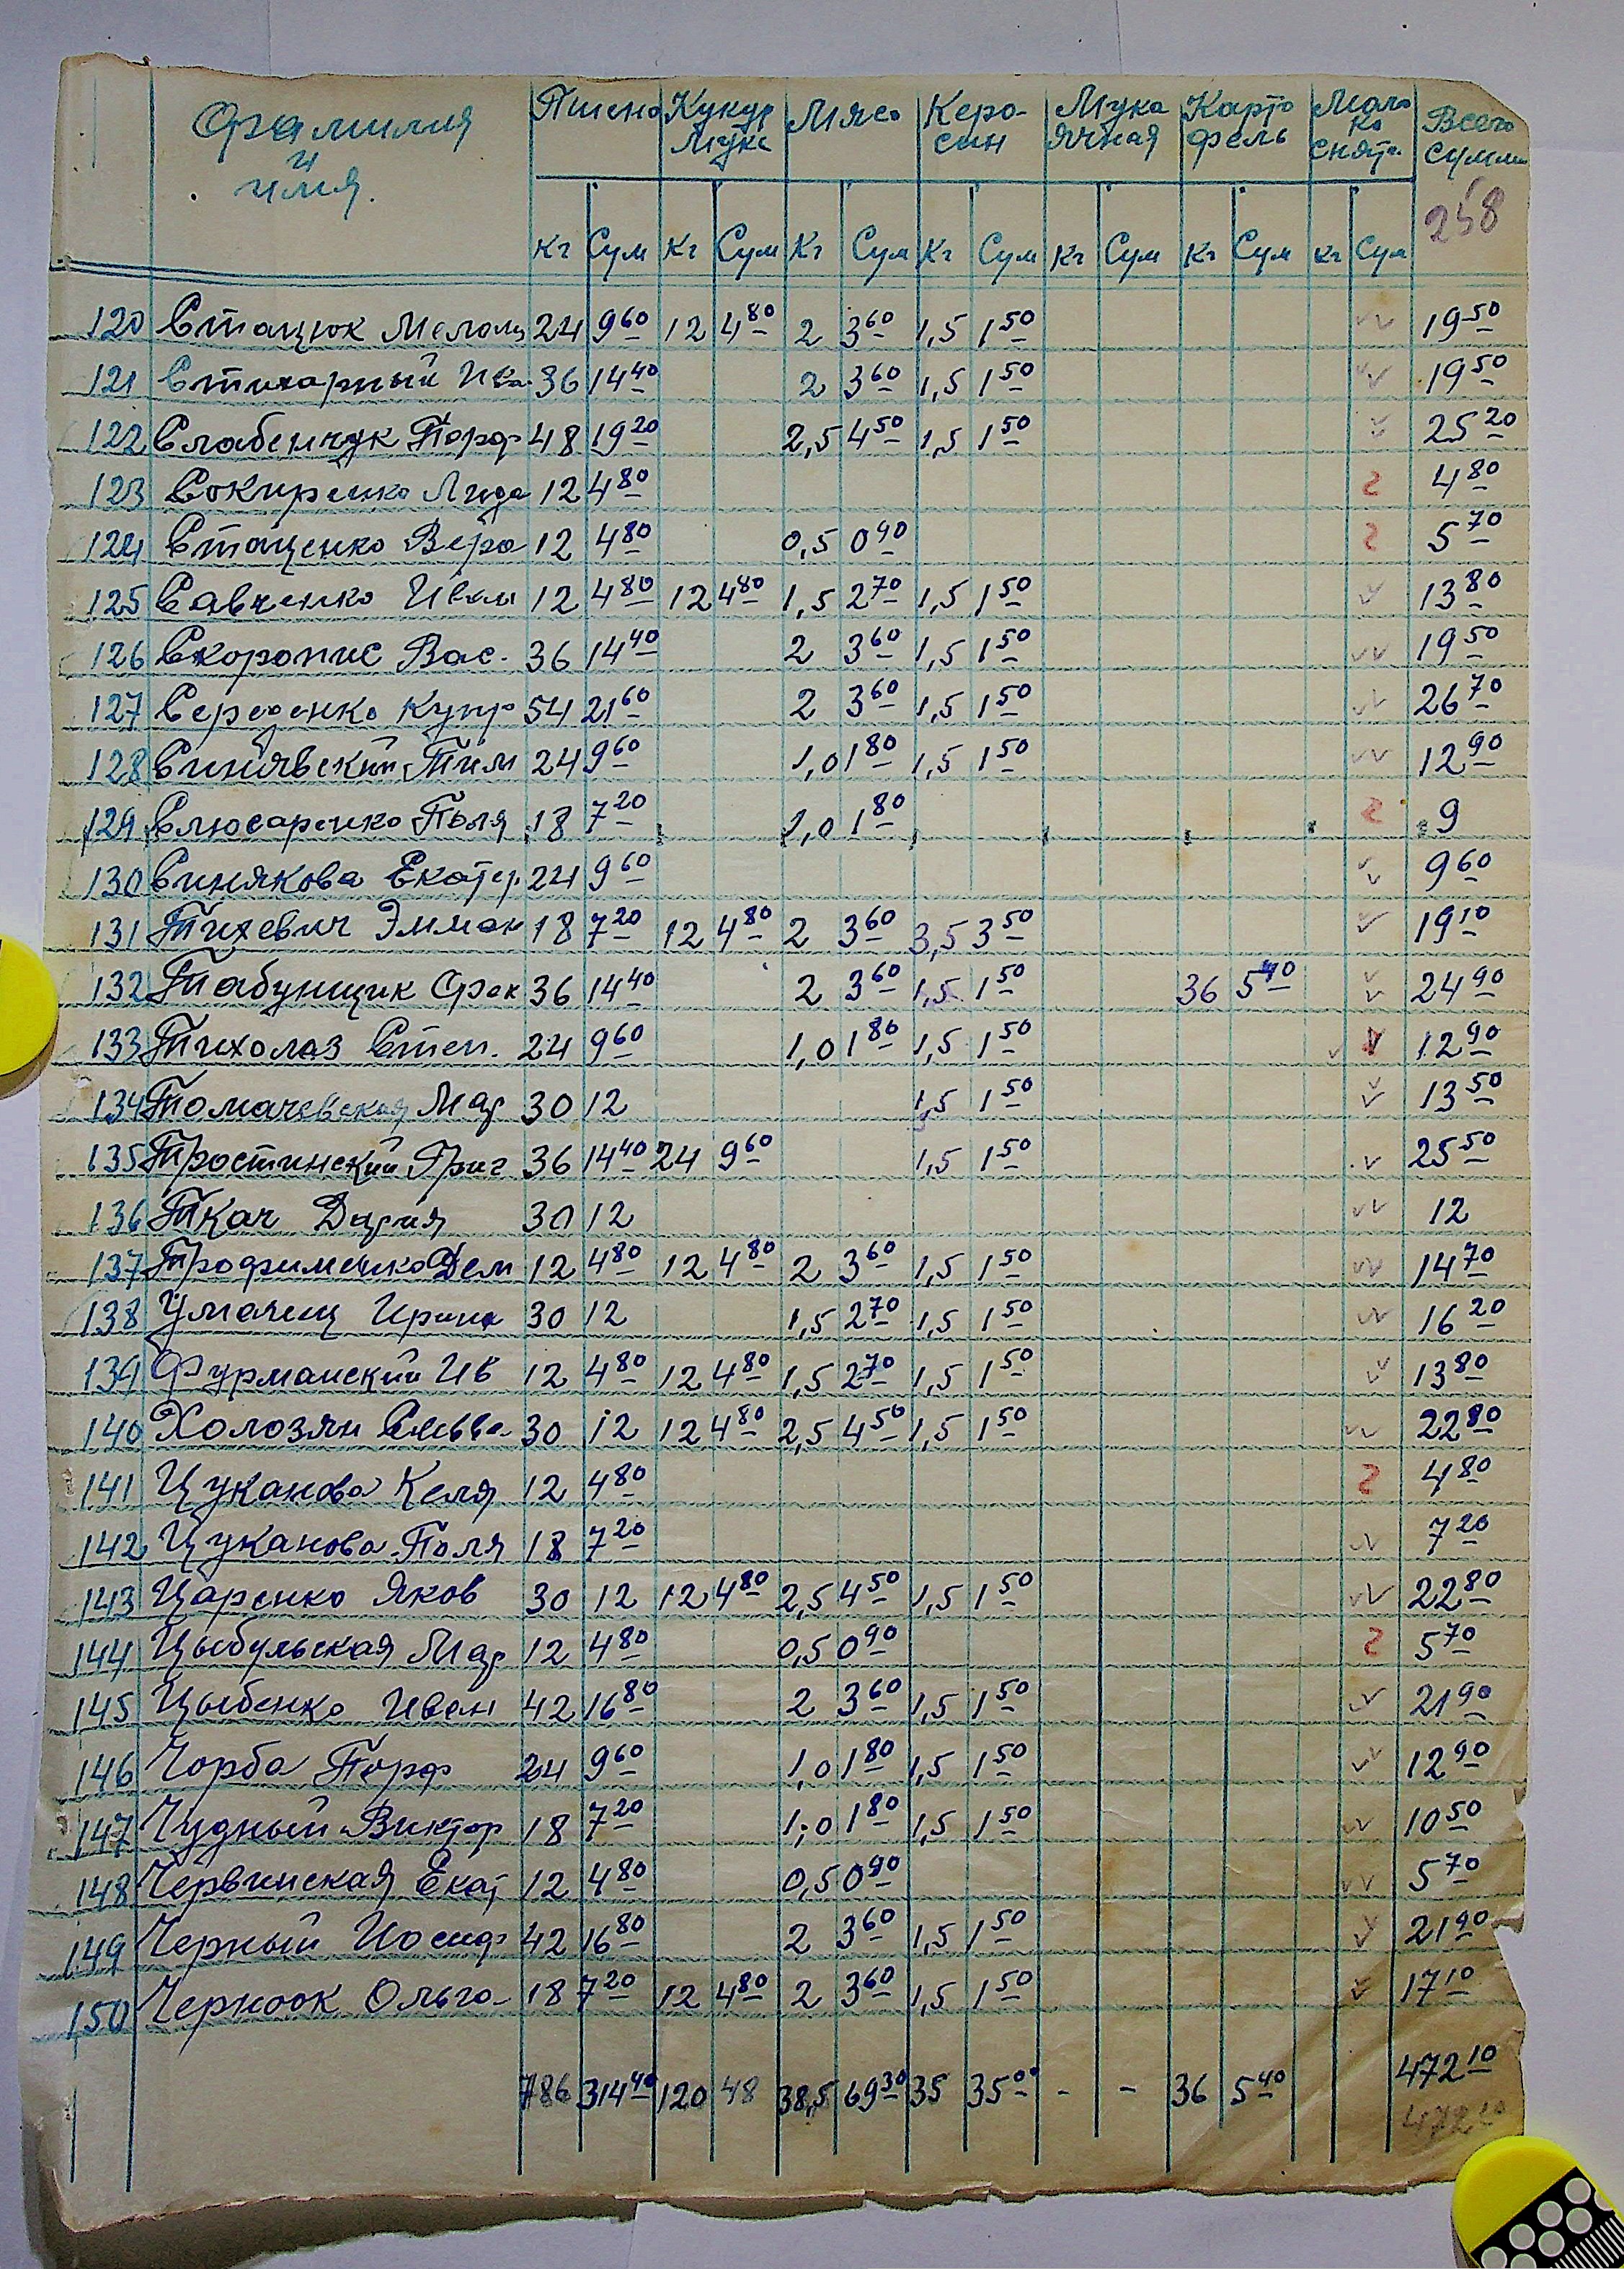 Фамилия и имя. Пшено Кукур мука Мясо Керосин Мука ячная Картофель Молоко снят. Всего сумма
258
Кг Сум Кг Сум Кг Сум Кг Сум Кг Сум Кг Сум Кг Сум
120 Стацюк 24 9 60 12 4 80 2 3 60 1,5 1 50 19 50
121 Стихарный Ив 36 14 40 2 3 60 1,5 1 50 19 50
122 Слабенчук Порф 48 19 20 2,5 4 50 1,5 1 50 25 20
123 Сокиренко Лида 12 4 80 2 4 80
124 Стаценко Вера 12 4 80 0,5 0 90 2 5 70
125 Савченко Иван 12 4 80 12 4 80 1,5 2 70 1,5 1 50 13 80
126 Скоропис Вас. 36 14 40 2 3 60 1,5 1 50 19 50
127 Середенко Купр 54 21 60 2 3 60 1,5 1 50 26 70
128 Синявский Тим 24 9 60 1,0 1 80 1,5 1 50 12 90
129 Слюсаренко Поля 18 7 20 1,0 1 80 2 9
130 Синякова Екатер 24 9 60 9 60
131 Тихевич Эмман 18 7 20 12 4 80 2 3 60 3,5 3 50 19 10
132 Табунщик 36 14 40 2 3 60 1,5 1 50 36 5 40 24 90
133 Тихолаз Степ. 24 9 60 1,0 1 80 1,5 1 50 12 90
134 Томачевская Мар 30 12 1,5 1 50 13 50
135 Тростинский Григ 36 14 40 24 9 60 1,5 1 50 25 50
136 Ткач Дария 30 12 12
137 Трофименко Дем 12 4 80 12 4 80 2 3 60 1,5 1 50 14 70
138 Уманец Ирина 30 12 1,5 2 70 1,5 1 50 16 20
139 Фурманский Ив 12 4 80 12 4 80 1,5 2 70 1,5 1 50 13 80
140 Холозян 30 12 12 4 80 2,5 4 50 1,5 1 50 22 80
141 Цуканова Келя 12 4 80 2 4 80
142 Цуканова Поля 18 7 20 7 20
143 Царенко Яков 30 12 12 4 80 2,5 4 50 1,5 1 50 22 80
144 Цыбульская Мар 12 4 80 0,5 0 90 2 5 70
145 Цыбенко Иван 42 16 80 2 3 60 1,5 1 50 21 90
146 Чорба Порф 24 9 60 1,0 1 80 1,5 1 50 12 90
147 Чудный Виктор 18 7 20 1,0 1 80 1,5 1 50 10 50
148 Червинская Екат 12 4 80 0,5 0 90 5 70
149 Черный Иосиф 42 16 80 2 3 60 1,5 1 50 21 90
150 Черноок Ольга 18 7 20 12 4 80 2 3 60 1,5 1 50 17 10
786 314 40 120 48 38,5 69 30 35 35 00 - - 36 5 40 472 10
472 10